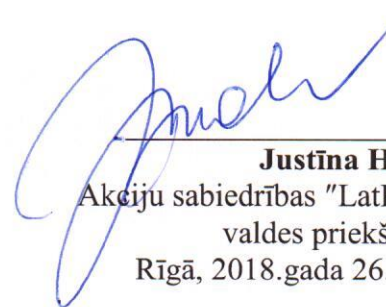 Justīna H
Akciju sabiedrības "Latl
valdes priekš
Rīgā, 2018.gada 26.